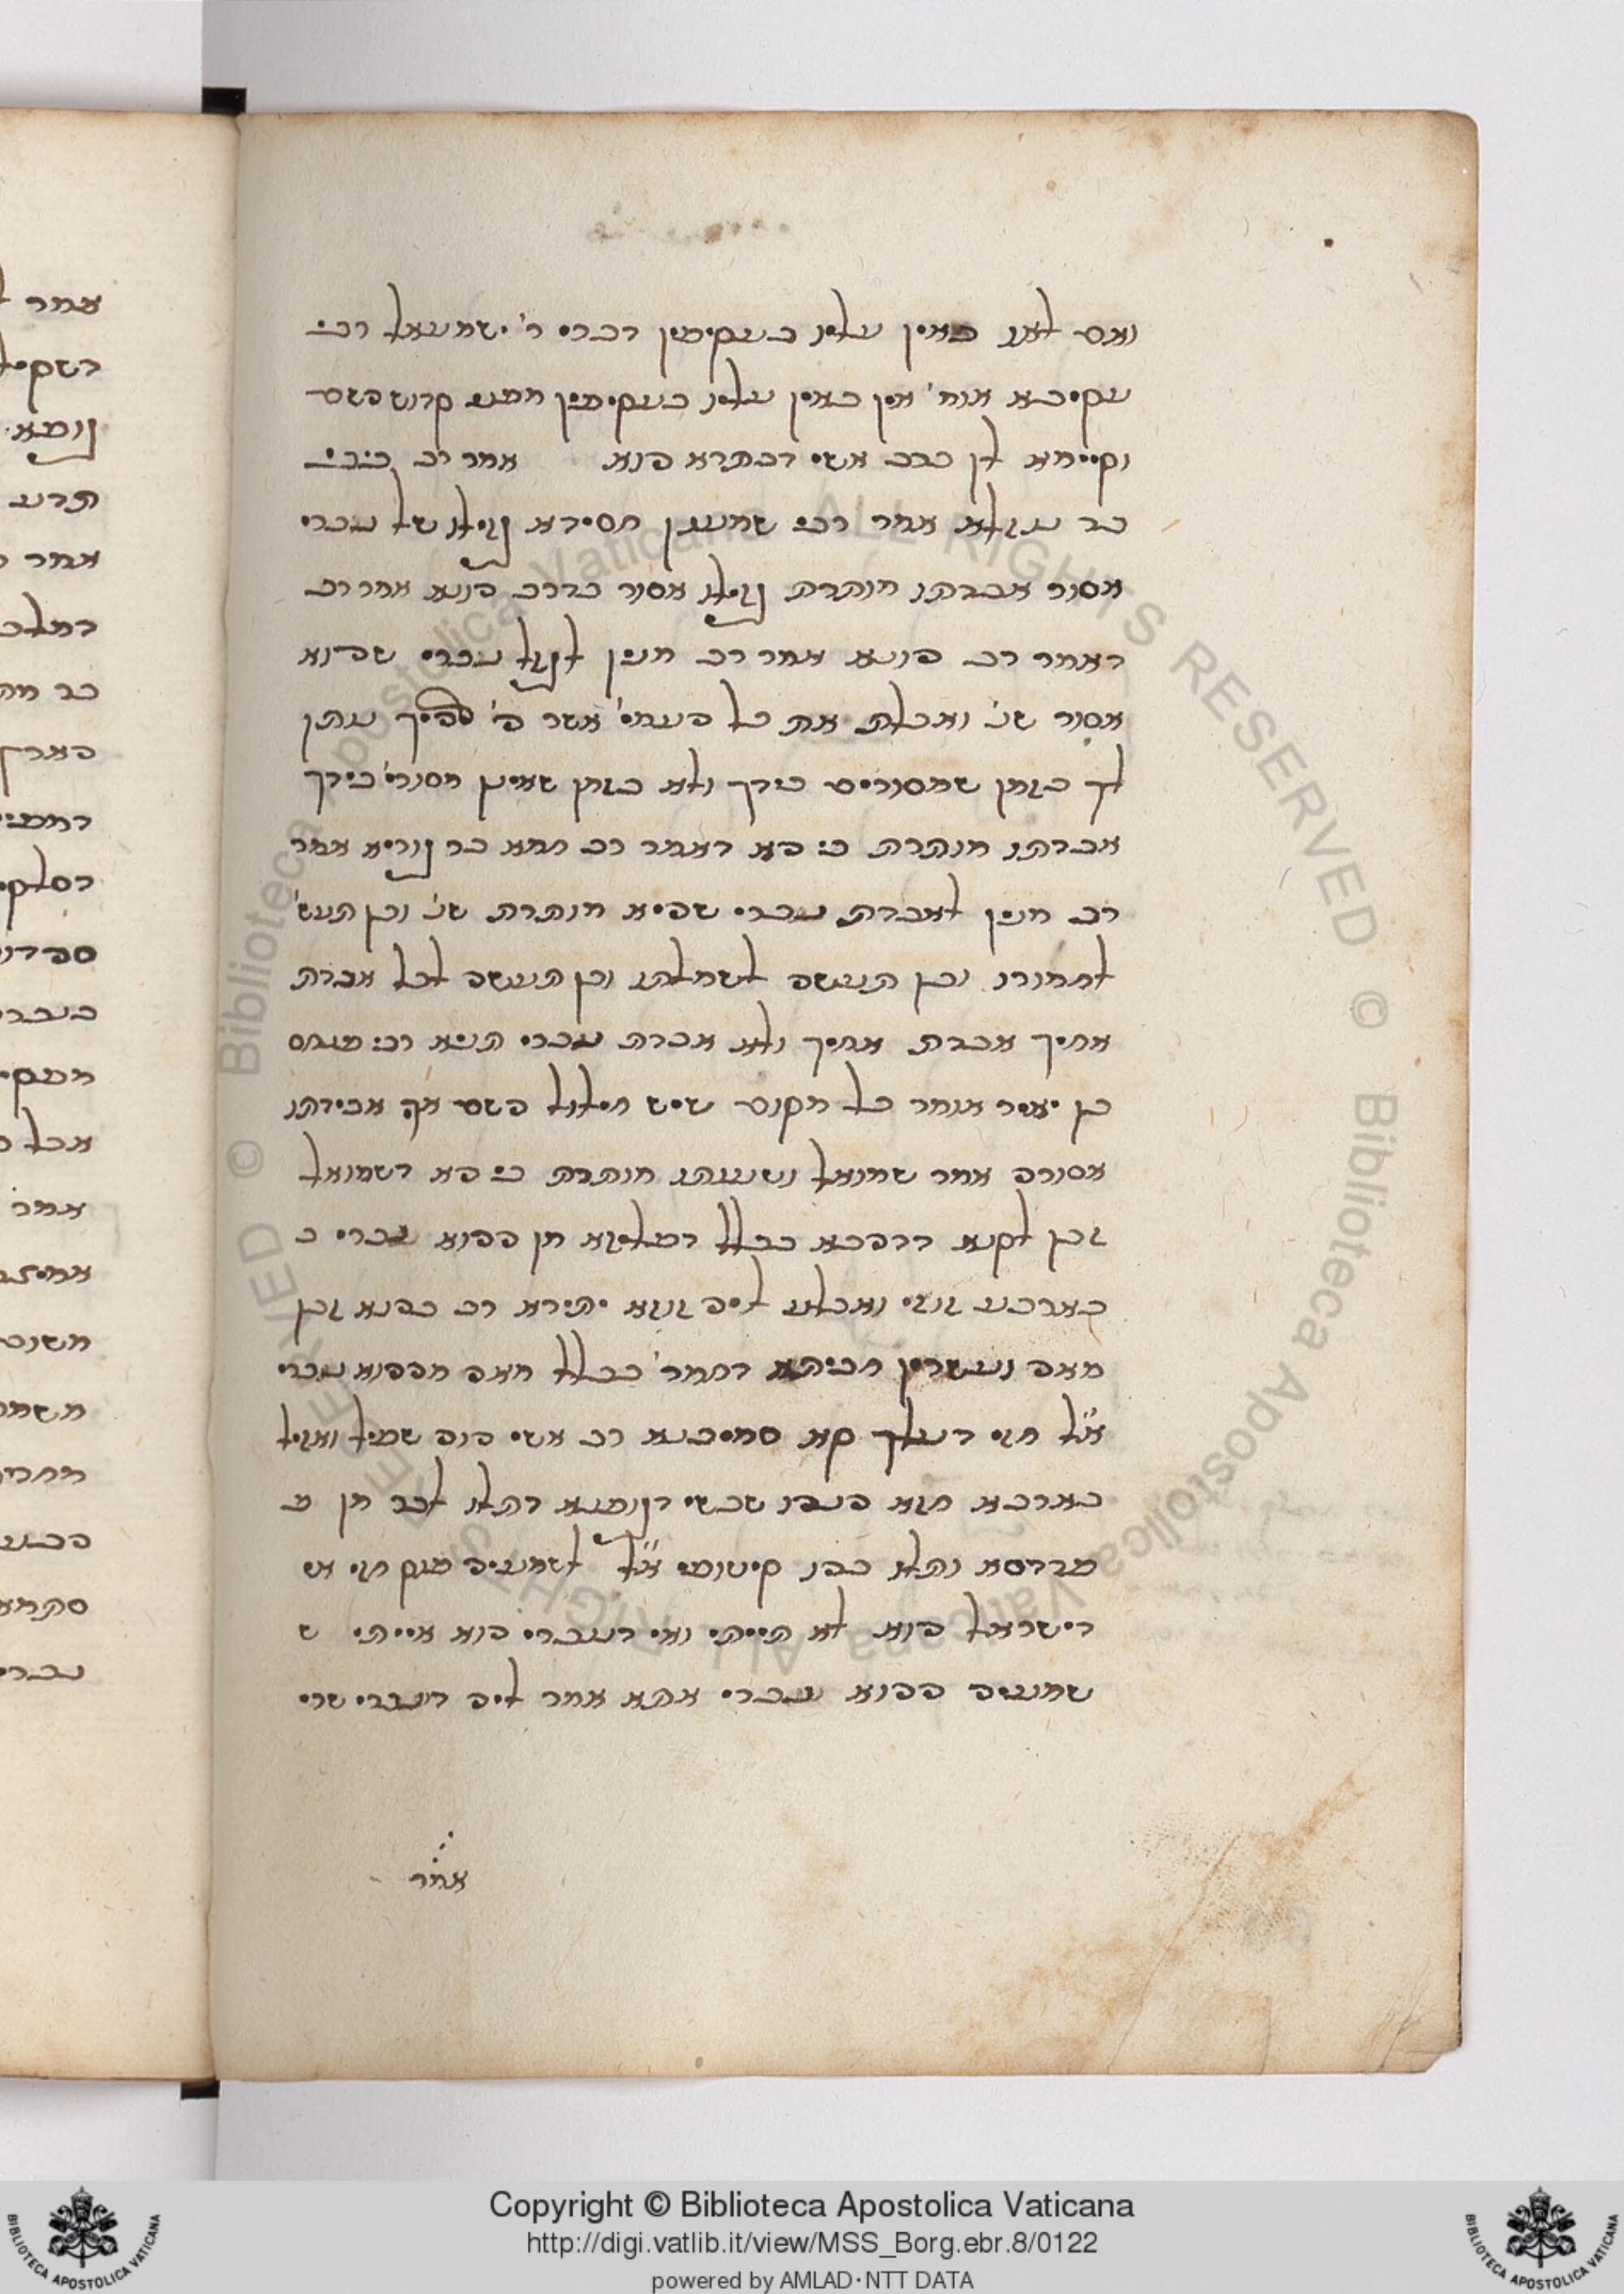 ואם לאו באין עליו בעקיפין דברי ר' ישמעאל רבי
עקיבא אומ' אין באין עליו בעקיפין מפני קדוש השם
וקיימא לן כרב אשי דבתרא הוא אמר רב ביבי
בר גוזלא אמר רבי שמעון חסידא גזילו של עברי
אסור אבדתו מותרת גזילו אסור כדרב הונא אמר רב
דאמר רב הונא אמר רב מנין לגזל עברי שהוא
אסור שנ' ואכלת את כל העמי' אשר ה' אלהיך נותן
לך בזמן שמסורים בידך ולא בזמן שאינן מסורי' בידך
אבדתו מותרת כי הא דאמר רב חמא בר גוריא אמר
רב מנין לאבדת עברי שהיא מותרת שנ' וכן תעש'
לחמורו וכן תעשה לשמלתו וכן תעשה לכל אבדת
אחיך אבדת אחיך ולא אבדת עברי תניא רבי פנחס
בן יאיר אומר כל מקום שיש חילול השם אף אבידתו
אסורה אמר שמואל וטעותו מותרת כי הא דשמואל
זבן לקנא דדהבא בכלל דפליזא מן ההוא עברי ב
בארבע זוזי ואבלע ליה זוזא יתירא רב כהנא זבן
מאה ועשרין חביתא דחמר' בכלל מאה מההוא עברי
א"ל חזי דעלך קא סמיכנא רב אשי הוה שקיל ואזיל
באורחא חזא הנהו שבשי דגופנא דתלו לבר מן פ
פרדסא ותלו בהו קיטופי א"ל לשמעיה פוק חזי אי
דישראל הוא לא תייתי ואי דעברי הוא אייתי ש
שמעיה ההוא עברי אתא אמר ליה דעברי שרי
אמר
Copyright © Biblioteca Apostolica Vaticana
http://digi.vatlib.it/view/MSS_Borg.ebr.8/0122
powered by AMLAD·NTT DATA